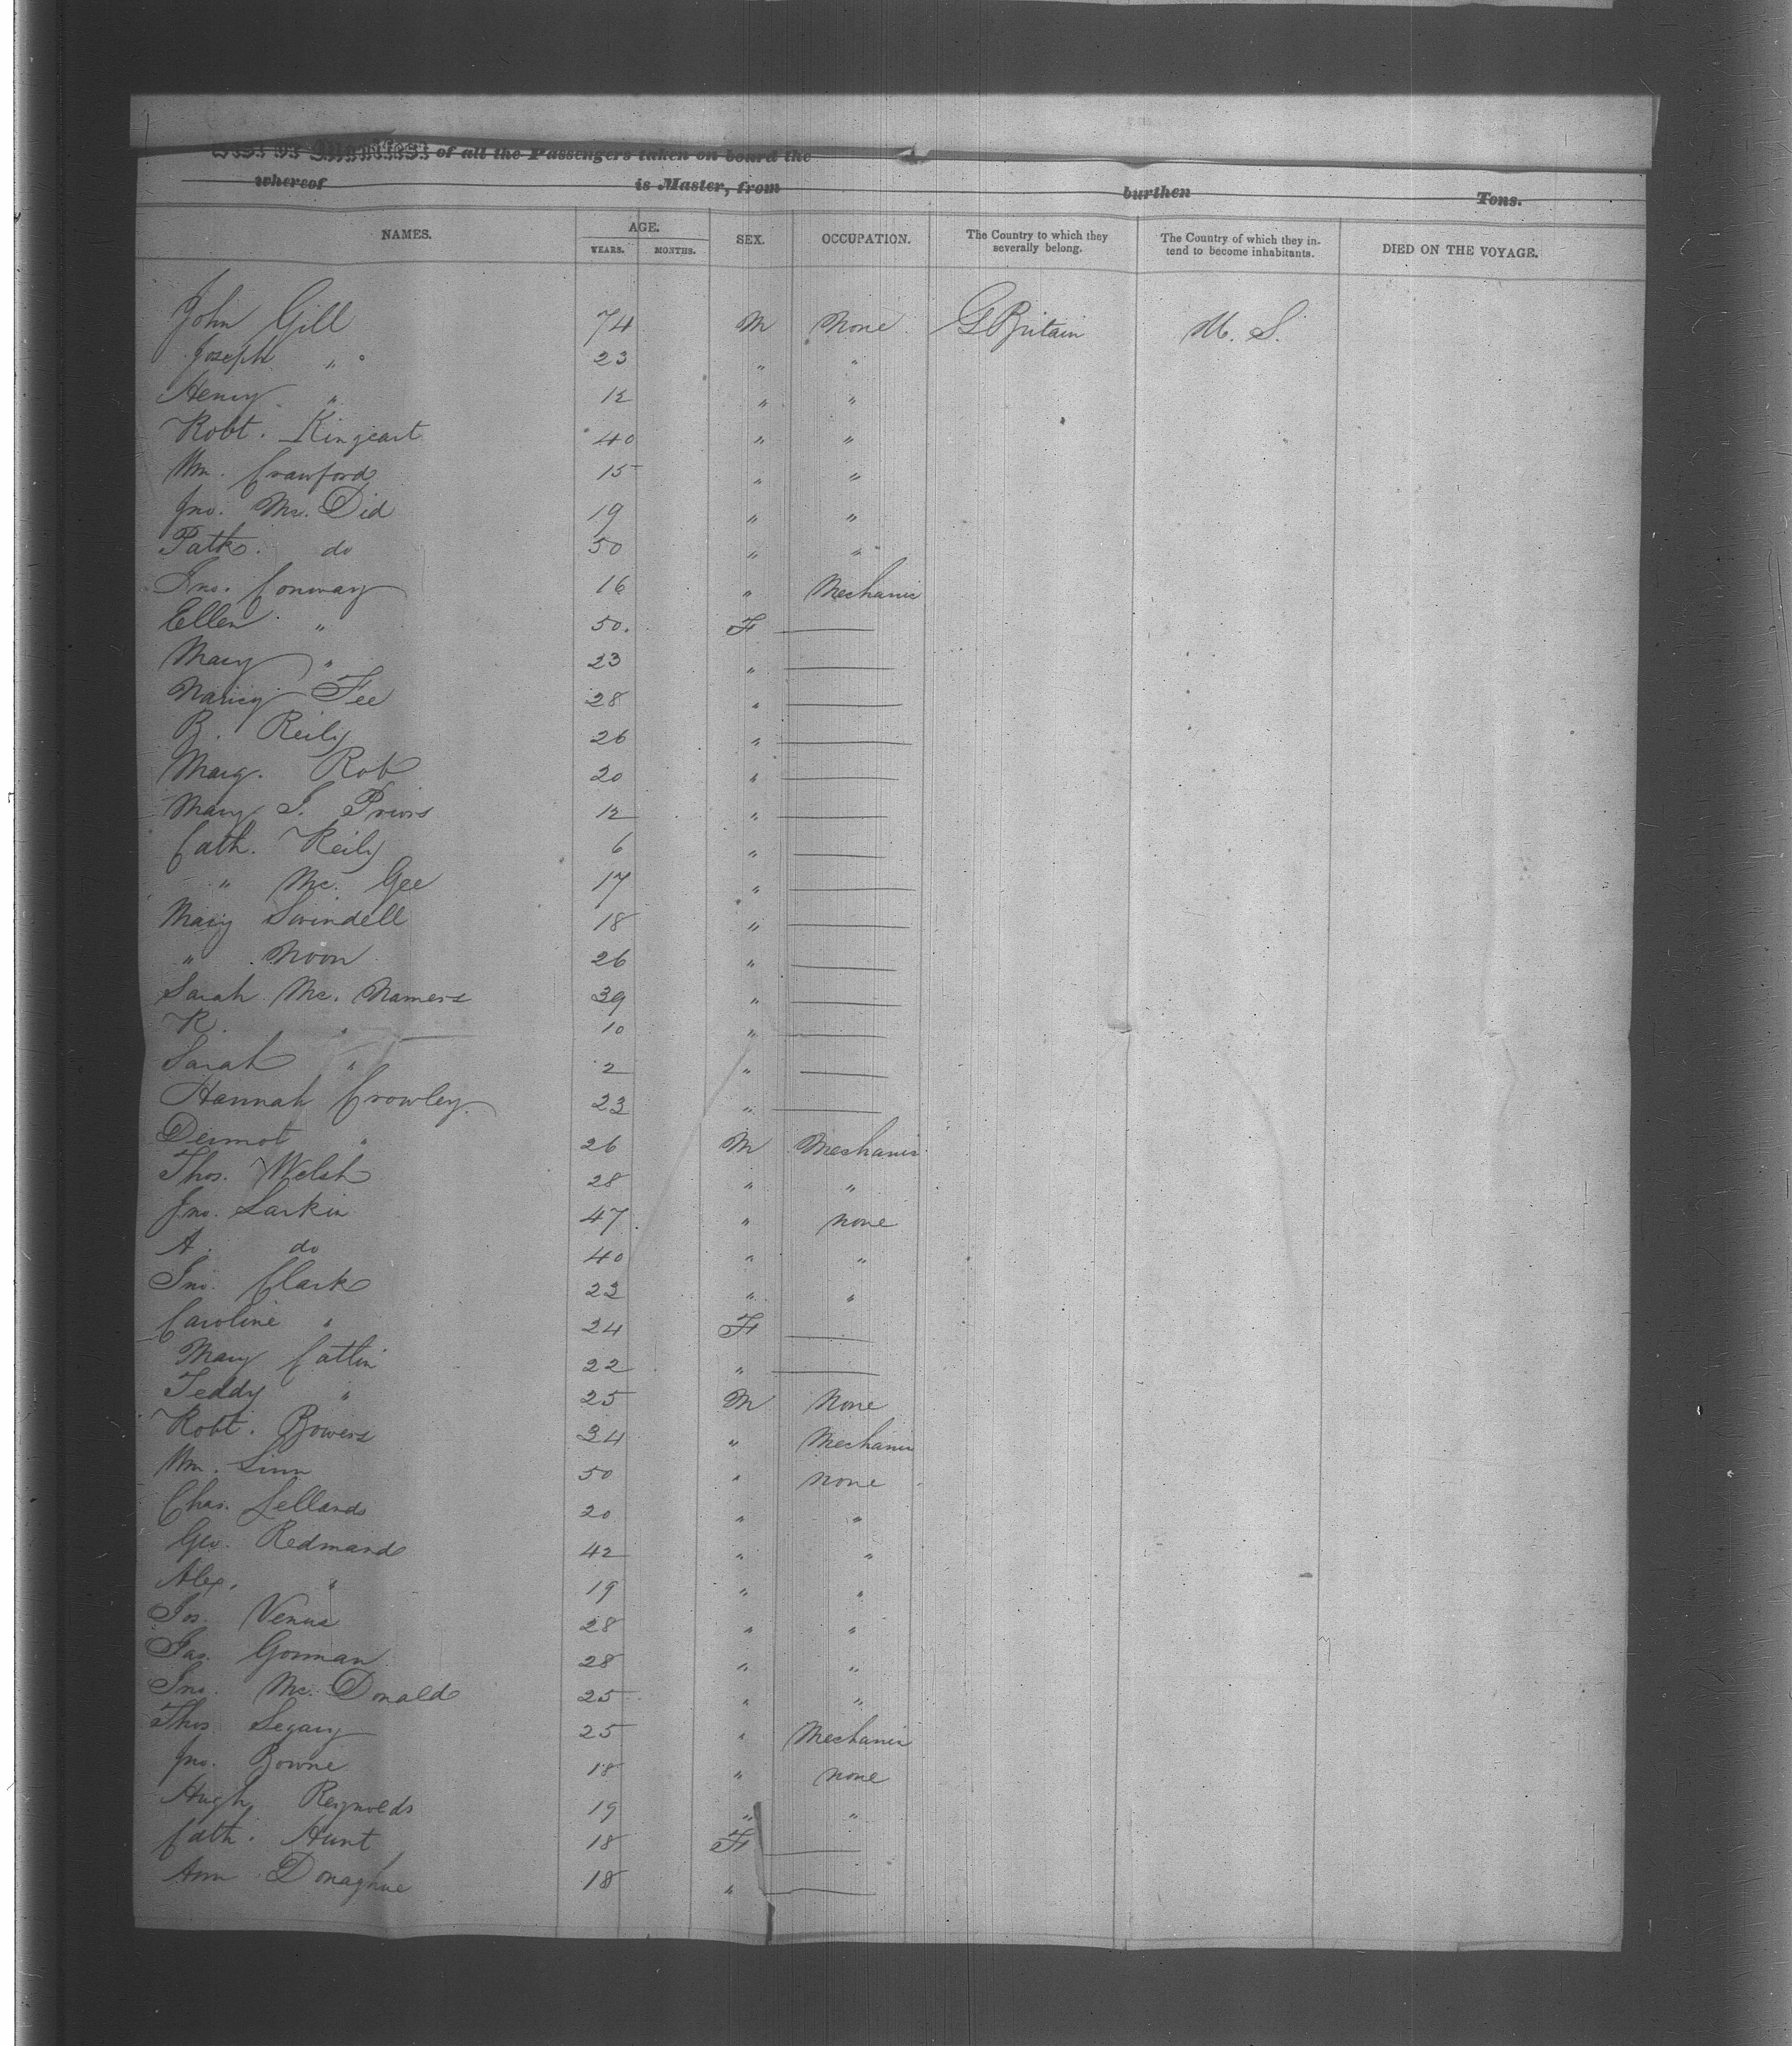 List or Manifest of all the Passengers taken on board the
whereof is Master, from burthen Tons.
NAMES. AGE. SEX. OCCUPATION. The Country to which they severally belong. The Country of which they in- tend to become inhabitants. DIED ON THE VOYAGE.
YEARS. MONTHS.
John Gill 74 M None G Britain U. S.
Joseph " 23 " "
Henry " 12 " "
Robt. Kingeart 40 " "
Wm. Crawford 15 " "
Jno. Mc. Did 19 " "
Patk. do 50 " "
Jno. Conway 16 " Mechanic
Ellen " 50. F —
Mary " 23 " —
Nancy Fee 28 " —
B. Reily 26 " —
Marg. Rob 20 " —
Mary J. Priors 12 " —
Cath. Reily 6 " —
" Mc. Gee 17 " —
Mary Swindell 18 " —
" Noon 26 " —
Sarah Mc. Namers 39 " —
R. " 10 " —
Sarah " 2 " —
Hannah Crowley. 23 " —
Dermot " 26 M Mechanic
Thos. Welsh 28 " "
Jno. Larkin 47 " none
A. do 40 " "
Jno. Clark 23 " "
Caroline " 24 F —
Mary Catlin 22 " —
Teddy " 25 M None
Robt. Bowers 34 " Mechanic
Wm. Linn 50 " none
Chas. Lellands 20 " "
Geo. Redmand 42 " "
Alex. " 19 " "
Jos. Venus 28 " "
Jas. Gorman 28 " "
Jno. Mc. Donald 25 " "
Thos. Segary 25 " Mechanic
Jno. Bowne 18 " none
Hugh Reynolds 19 " "
Cath. Hunt 18 F —
Ann Donaghue 18 " —